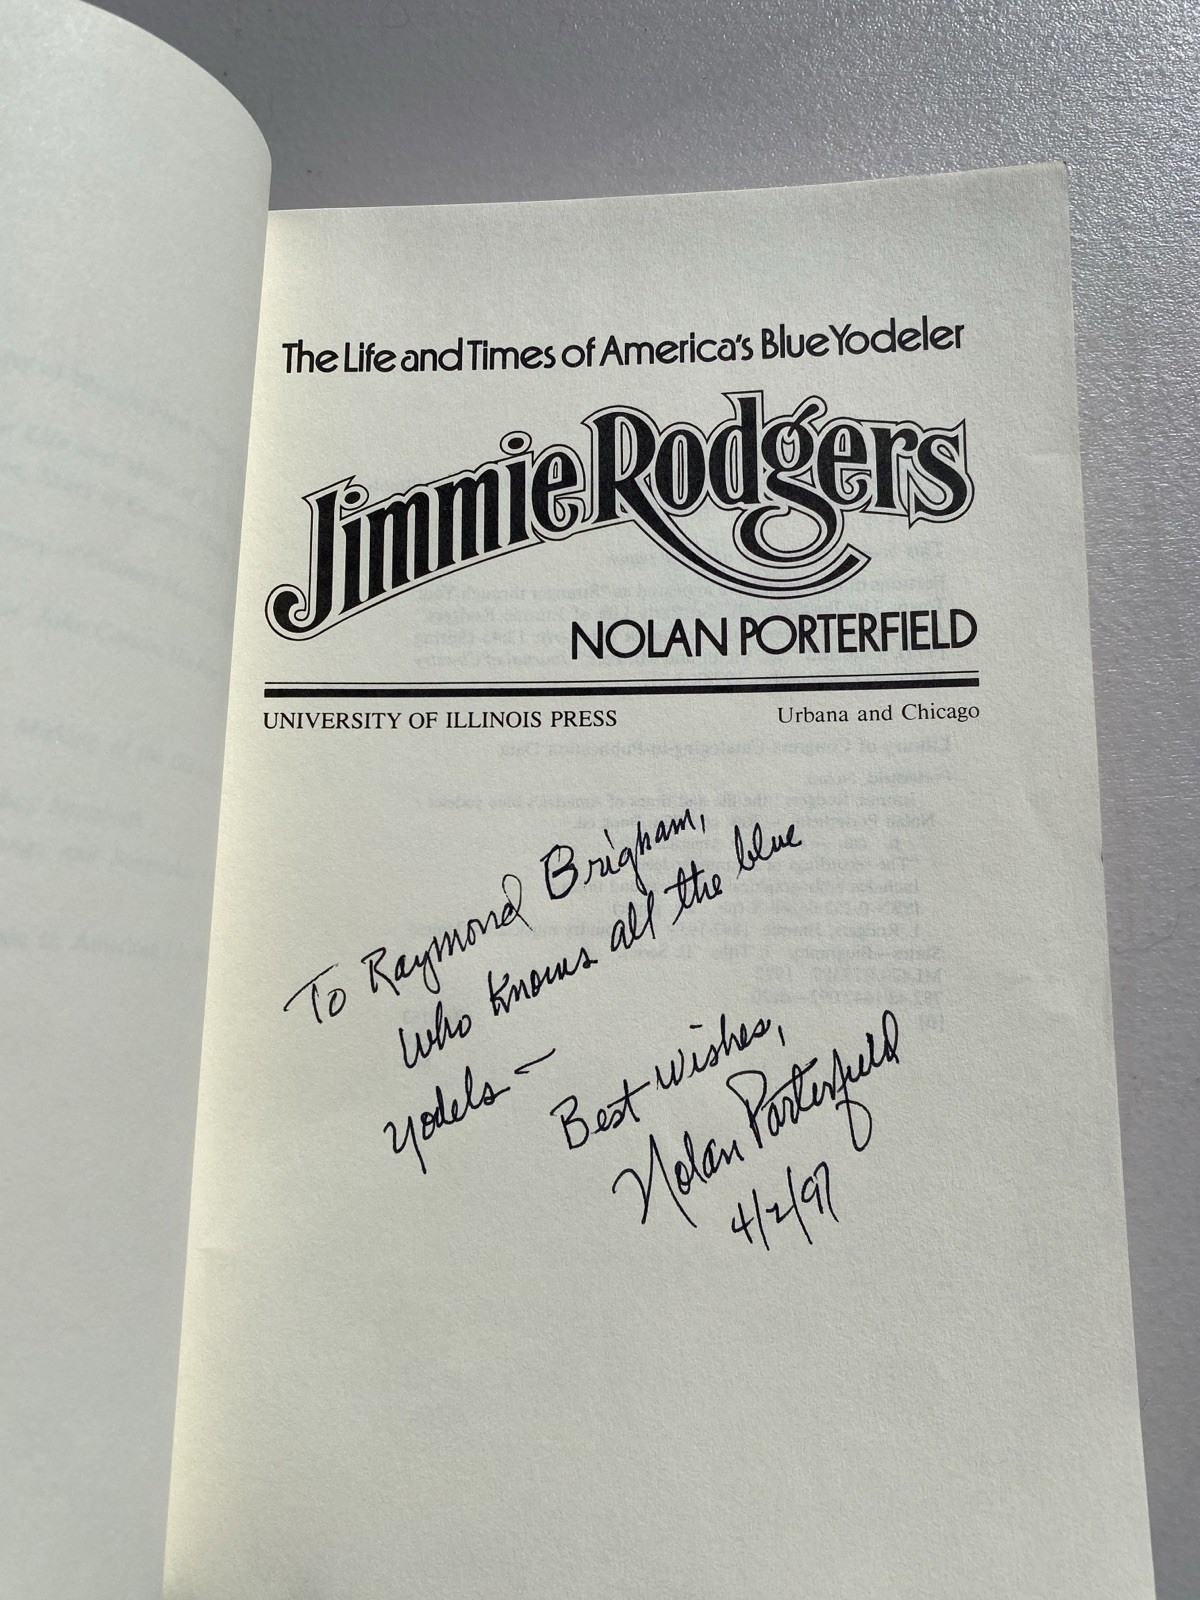 The Life and Times of America's Blue Yodeler
Jimmie Rodgers
NOLAN PORTERFIELD
UNIVERSITY OF ILLINOIS PRESS Urbana and Chicago
To Raymond Brigham,
who knows all the blue
yodels —
Best wishes,
Nolan Porterfield
4/2/97